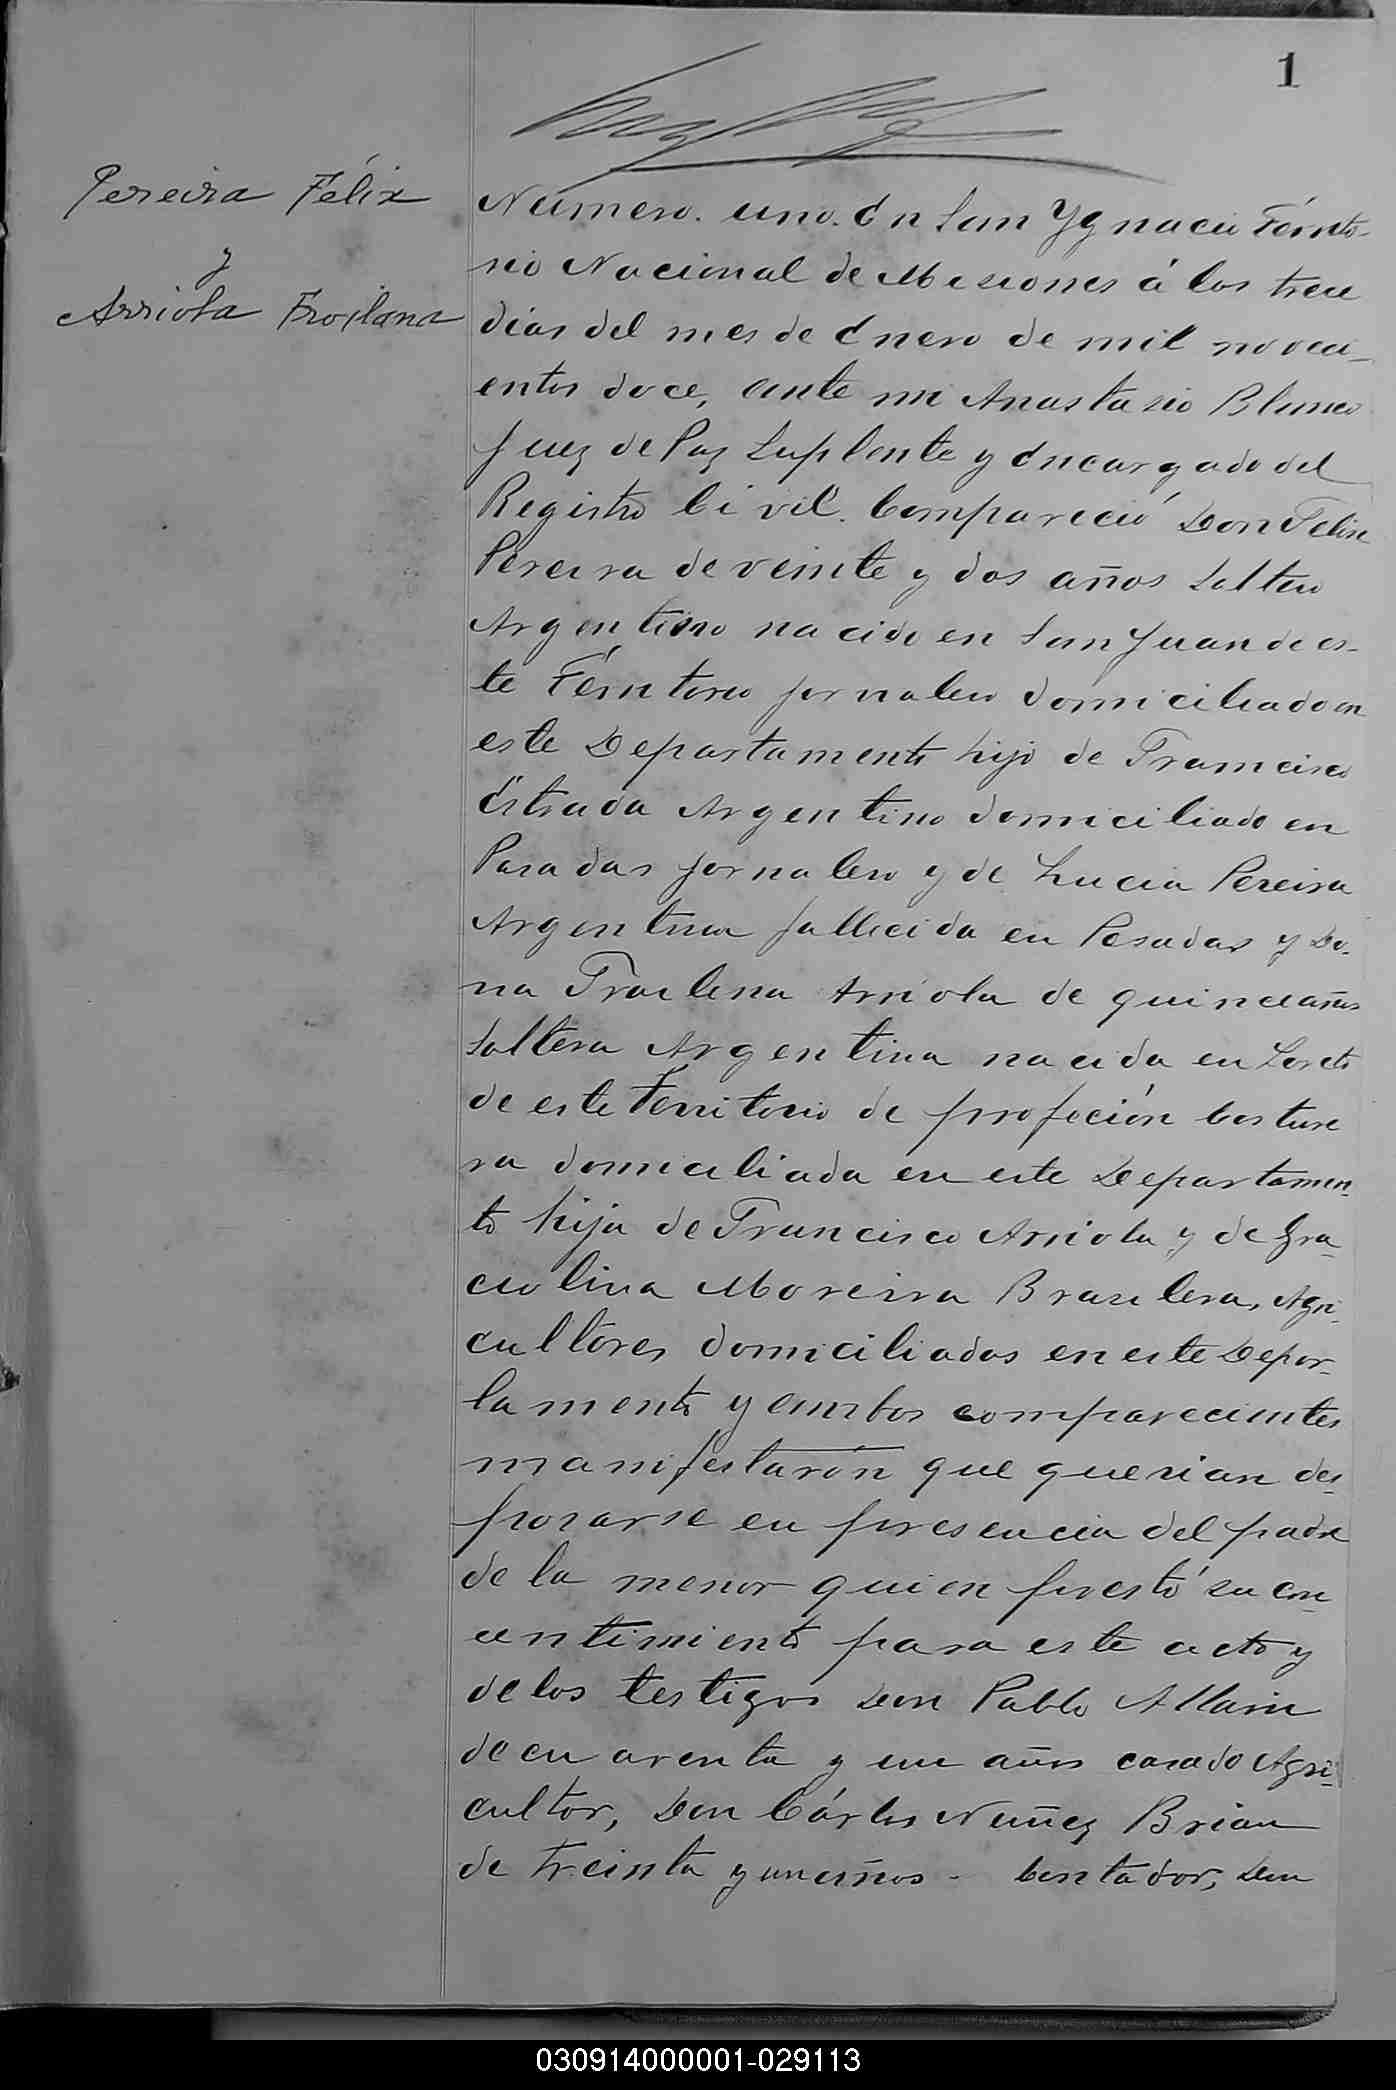 1
Pereira Félix
y
Arriola Froilana
Número. uno. En San Ygnacio Térrito-
rio Nacional de Misiones á los trece
días del mes de Enero de mil noveci-
entos doce, ante mi Anastasio Blanco
Juez de Paz Suplente y Encargado del
Registro Civil. Compareció Don Felix
Pereira de veinte y dos años Soltero
Argentino nacido en San Juan de es-
te Térritorio jornalero domiciliado en
este Departamento hijo de Francisco
Estrada Argentino domiciliado en
Posadas jornalero y de Lucia Pereira
Argentina fallecida en Posadas y Do-
na Froilena Arriola de quince años
Soltera Argentina nacida en Loreto
de este Territorio de profeción Costure
ra domiciliada en este Departamen-
to hija de Francisco Arriola y de Gra-
ciolina Moreira Brasilera, Agri-
cultores domiciliados en este Depar-
tamento y ambos comparecientes
manifestarón que querian des-
posarse en presencia del padre
de la menor quien prestó su con-
centimiento para este acto y
de los testigos Don Pablo Allain
de cuarenta y un años casado Agri-
cultor, Don Cárlos Nuñez Brian
de treinta y un años - Contador, Don
030914000001-029113